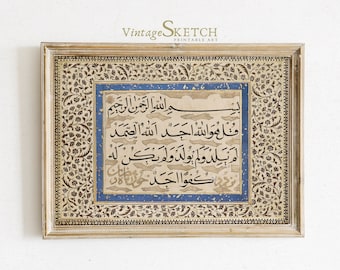 VintageSKETCH
PRINTABLE ART
بسم الله الرحمن الرحيم
قل هو الله احد الله الصمد
لم يلد ولم يولد ولم يكن له
كفوا احد